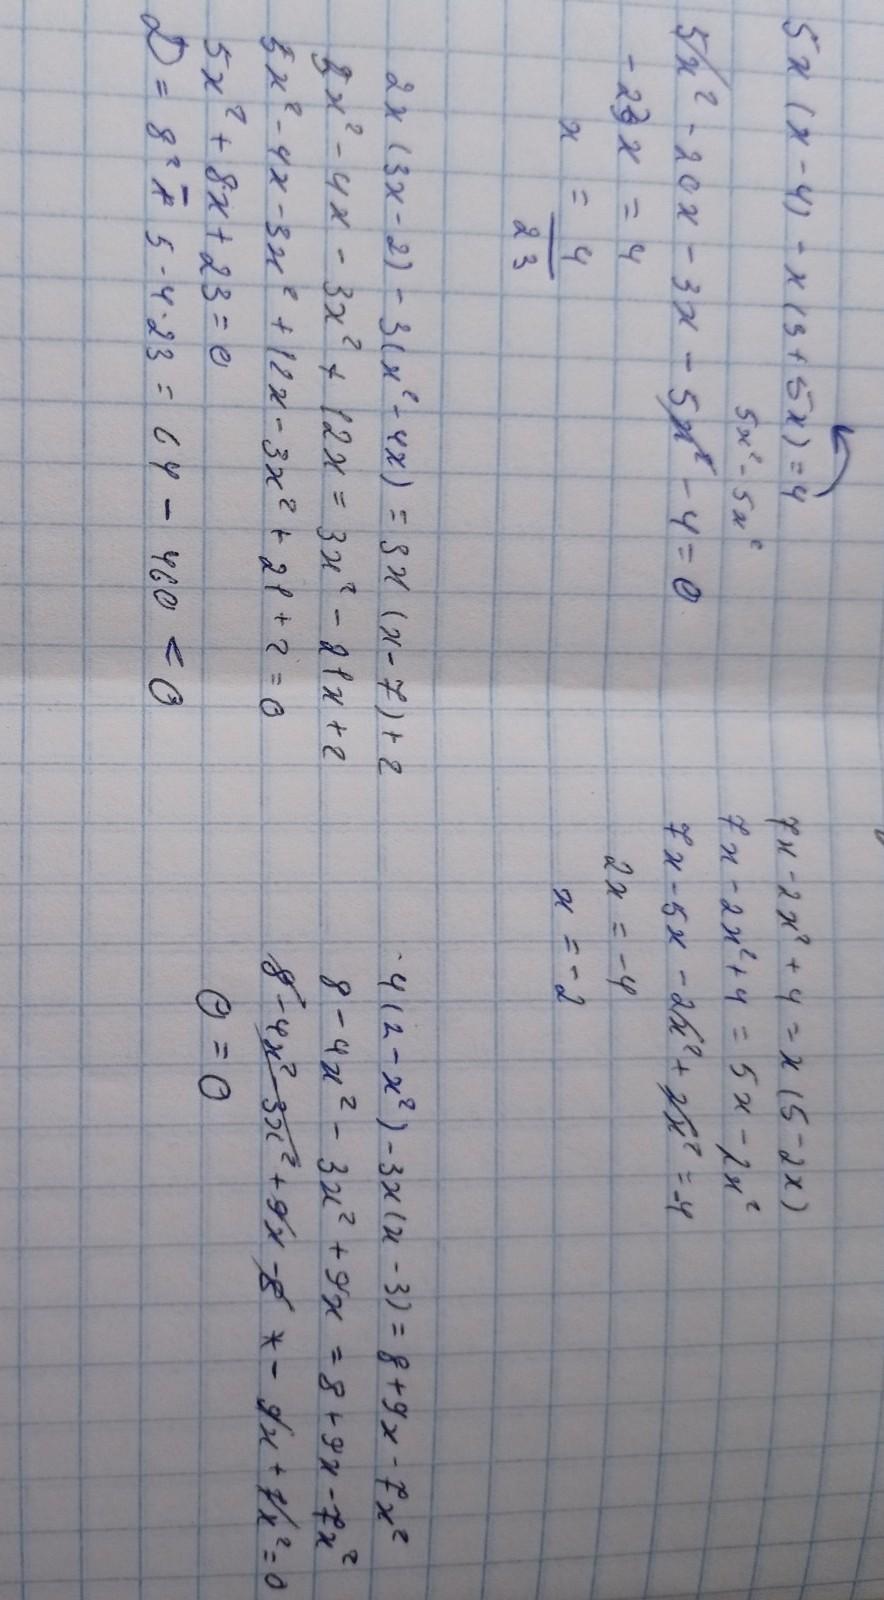 5x(x-4)-x(3+5x)=4
5x²-5x²
5x²-20x-3x-5x²-4=0
-23x=4
x=4/23
2x(3x-2)-3(x²-4x)=3x(x-7)+2
8x²-4x-3x²+12x=3x²-21x+2
5x²-4x-3x²+12x-3x²+21+2=0
5x²+8x+23=0
D=8²-5-4·23=64-460<0
7x-2x²+4=x(5-2x)
7x-2x²+4=5x-2x²
7x-5x-2x²+2x²=-4
2x=-4
x=-2
4(2-x²)-3x(x-3)=8+9x-7x²
8-4x²-3x²+9x=8+9x-7x²
8-4x²-3x²+9x-8-9x+7x²=0
0=0